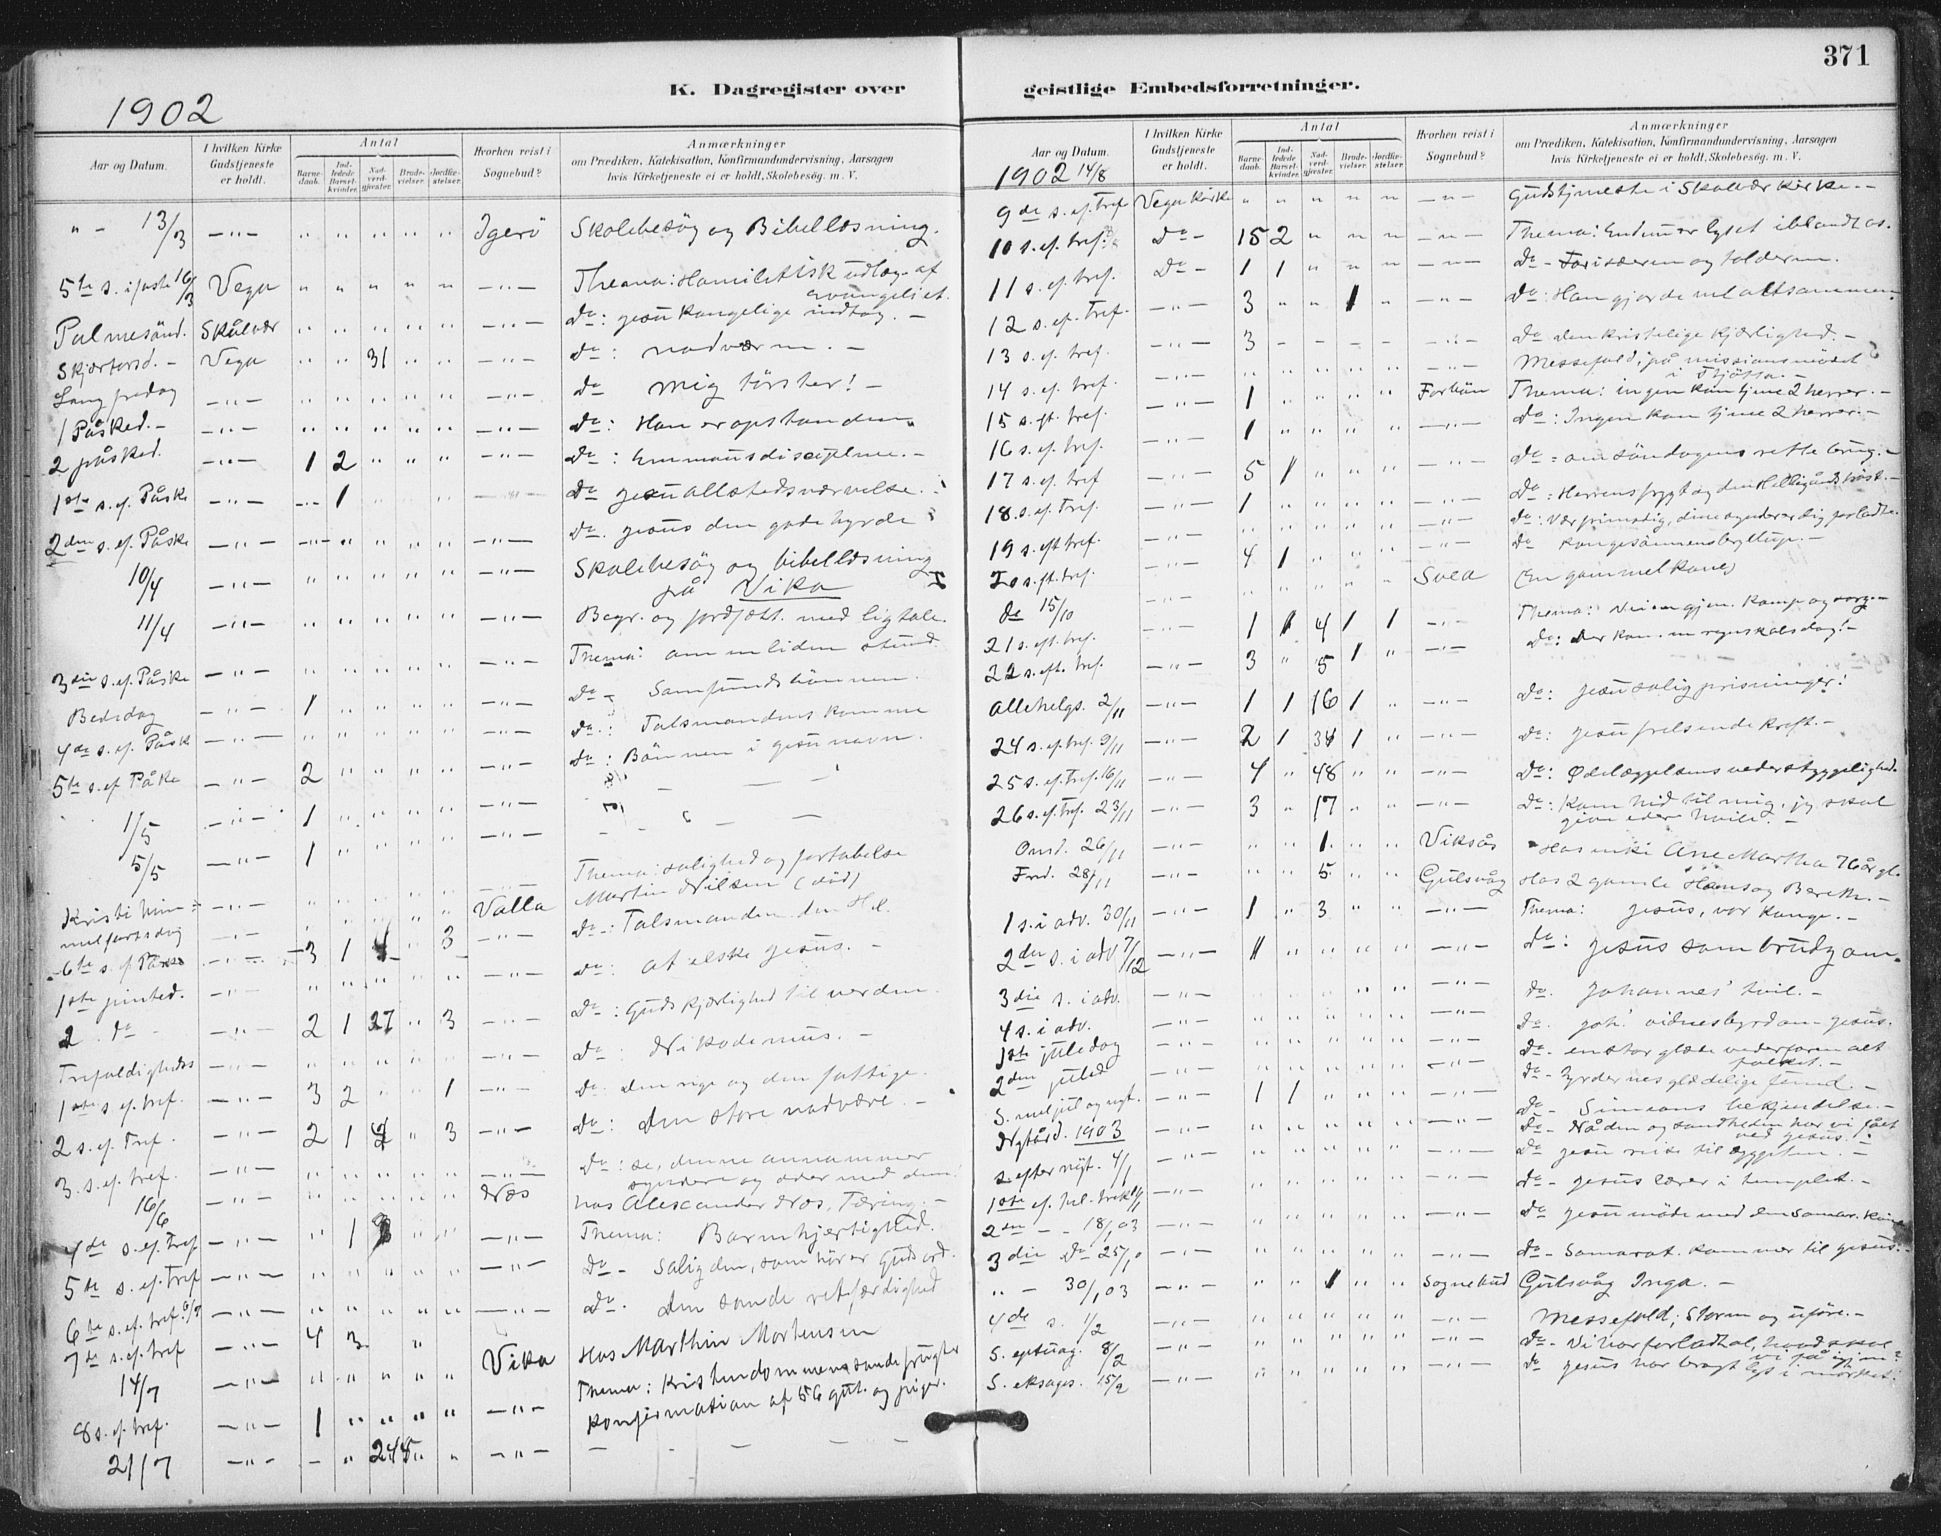 371
K. Dagregister over
geistlige Embedsforretninger.
1902
Aar og Datum.
I hvilken Kirke Gudstjeneste er holdt.
Antal
Barnedaab.
Indledede Barselkvinder.
Nadverdgjæster.
Brudevielser.
Jordfæstelser.
Hvorhen reist i Sognebud?
Anmærkninger
om Prædiken, Katekisation, Konfirmandundervisning, Aarsagen
hvis Kirketjeneste ei er holdt, Skolebesøg. m. V.
" - 13/3 - " - " " " " " Igerö Skolebesög og Bibellæsning.
5te s. i faste 16/3 Vega " " " " " - " - Thema: Homiletisk udlæg. af evangeliet.
Palmesönd. Skålvær " " " " " - " - Do: Jesu kongelige indtog. -
Skjærtorsd. - Vega " " 31 " " - " - Do: nadværen. -
Langfredag - " - " " " " " - " - Do mig törster! -
1 Påsked. - - " - " " " " " - " - Do: Han er opstanden.
2 påsked. - " - 1 2 " " " - " - Do: Emmausdisciplene. -
1ste s. ef. Påske - " - - 1 " " " - " - Do Jesu allestedsværvelse.
2den s. ef. Påske - " - - " - " " " " - " - Do. Jesus den gode hyrde
10/4 - " - " " " " " - " - Skolebesög og bibellæsning
på Vika
11/4 - " - " " " " " - " - Begr. og jordfæst. med ligtale.
3die s. ef. Påske - " - " " " " " - " - Thema: om en liden stund
Bededag - " - 1 " " " " - " - Do - Samfundsbönnen.
4de s. ef. Påsk - " - " " " " " - " - Do: Talsmandens komme
5te s. ef Påke - " - 2 " " " " - " - Do: Bönnen i Jesu navn.
1/5 - " - 1 " " " " - " -
5/5 - " - 1 " " " " - " -
Kristi himmelfartsdag - " - Thema: salighed og fortabelse
- " - " " " " " Valla Martin Nilsen (död)
6te s. ef Påske - " - 3 1 4 " 3 - " - Do: Talsmanden den H.
1ste pintsed. - " - " " " " " - " - Do: At elske Jesus. -
2. do - " - 2 1 27 " 3 - " - Do: Guds kjærlighed til verden.
Trefoldigheds - " - " " " " " - " - Do: Nikodemus. -
1ste s. ef. tref. - " - 3 2 " " 1 - " - Do. Den rige og den fattige.
2 s. ef. Tref. - " - 2 1 2 " 3 - " - Do: Den store nadvære. -
3. s. ef. tref. - " - " " " " " - " - Do: se, denne annammer
syndere og æder med dem!
16/6 - " - " " " " " Næs hos Alexander Næs, Tæring. -
4de s. ef. Tref - " - " 1 " " - " - Thema: Barmhjertighed.
5te s. ef. Tref - " - " " " " " - " - Do - Salig den, som hörer Guds ord.
6te s. ef. tref. 6/7 - " - " " " " " - " - Do. Den sande retfærdighed
7de s. ef. tref - " - 4 3 "
14/7 - " - " " " " " Vika Hos Marthin Mortensen
8 s. ef. tref. - " - 1 " " " " - " - Thema: Kristendommens sande frugter
21/7 - " - - " 248 " " - " - Konfirmation af 56 gut. og piger.
Aar og Datum.
I hvilken Kirke Gudstjeneste er holdt.
Antal
Barnedaab.
Indledede Barselkvinder.
Nadverdgjæster.
Brudevielser.
Jordfæstelser.
Hvorhen reist i Sognebud?
Anmærkninger
om Prædiken, Katekisation, Konfirmandundervisning, Aarsagen
hvis Kirketjeneste ei er holdt, Skolebesøg. m. V.
1902 14/8
9de s. ef. Tref Vega kirke " " " " " - " - Gudstjeneste i Skålvær kirke. -
10 s. ef. tref. Do - 15 2 " " " - " - Thema: Endnu er lyset iblandt os.
11 s. ef. tref. Do - 1 1 " " " - " - Do - Farisæeren og tolderen.
12 s. ef. Tref. - " - 3 " " 1 " - " - Do: Han gjorde vel altsammen.
13 s. ef. tref. - " - 3 - - - - - " - Do den kristelige kjærlighed. -
14 s. ef. tref. - " - " " " " " - " - Messefald; på missionsmödet
i Tjötta. -
15 s. eft. tref. - " - 1 " " " " Forbön Thema: ingen kan tjene 2 herrer. -
16 s. ef. tref. 1 " " " " - " - Do: Ingen kan tjene 2 herrer. -
17 s. ef. tref - " - 5 1 " " " - " - Do = om söndagens rette brug. -
18 s. ef. Tref. 1 " " " " - " - Do: Herrens frygt og den Helligånds tröst. -
19 s. eft tref. " " " " " - " - Do: Vær frimodig, dine synder er dig forladte.
20 s. ft. tref. 4 1 " " " - " - Do kongesönnens bryllup. -
Do 15/10 " " " " " Svea (En gammel kone)
21 s. eft. tref. - " - 1 1 4 1 1 - " - Thema: Veien gjen. kamp og sorg. -
22 s. eft. tref. - " - 3 " 5 1 " - " - Do: Der kom. en regnskabsdag! -
Allehelgs. 2/11 - " - 1 1 16 1 " - " - Do: Jesu saligprisninger!
24 s. ef. tref. 9/11 - " - 2 1 34 1 " - " - Do: Jesu frelsende kraft. -
25 s. ef. Tref. 16/11 - " - 4 " 48 " " - " - Do: Ödelæggelsens vederstyggelighed.
26 s. ef. tref. 23/11 - " - 3 " 17 " " - " - Do: Kom hid til mig, jeg skal
give eder hvile. -
Onsd. 26/11 " " 1 " " Viksås Hos enke Ane Martha 76 år gl.
Fred. 28/11 " " 5 " " Gulsvåg Hos 2 gamle Hans og Bereth. -
1 s. i adv. 30/11 - " - 1 " 3 " " - " - Thema: Jesus, vor konge. -
2den s. i adv 7/12 - " - 1 " " " " - " - Do: Jesus som brudgom.
3die s. i adv. - " - " " " " " - " - Do. Johannes' tvil. -
4 s. i adv. - " - " " " " " - " - Do. Joh.' vidnesbyrd om Jesus.
1ste juledag - " - " " " " " - " - Do - en stor glæde vederfares alt
folket. -
2den juled - " - " " " " " - " - Do - Hyrdernes glædelige fund. -
S. mel jul og nyt. - " - 1 1 " " " - " - Do - Simeons bekjendelse. -
Nytård. 1903 - " - " " " " " - " - Do - Nåden og sandheden har vi fået
ved Jesus. -
s. efter nyt. 4/1 - " - " " " " " - " - Do Jesu reise til Ægypten. -
1ste ef. hel. trek 11/1 - " - " " " " " - " - Do - Jesus lærer i templet. -
2den - - 18/1 03 - " - " " " " " - " - Do Jesu möde med den Samar. kvinde
3die Do 25/1 0 - " - " " " " " - " - Do - Samarat. kommer til Jesus. -
" - 30/1 03 - " - " " 1 " " Sognebud Gulsvåg Inga. -
4de s. 1/2 - " - " " " " " - " - Messefald; Storm og uföre. -
S. eptuag. 8/2 - " - " " " " " - " - Do - Vi har forladt al, hvad skal
vi få igjen?
S. eksages. 15/2 - " - " " " " " - " - Do Jesus har bragt lys i mörket.